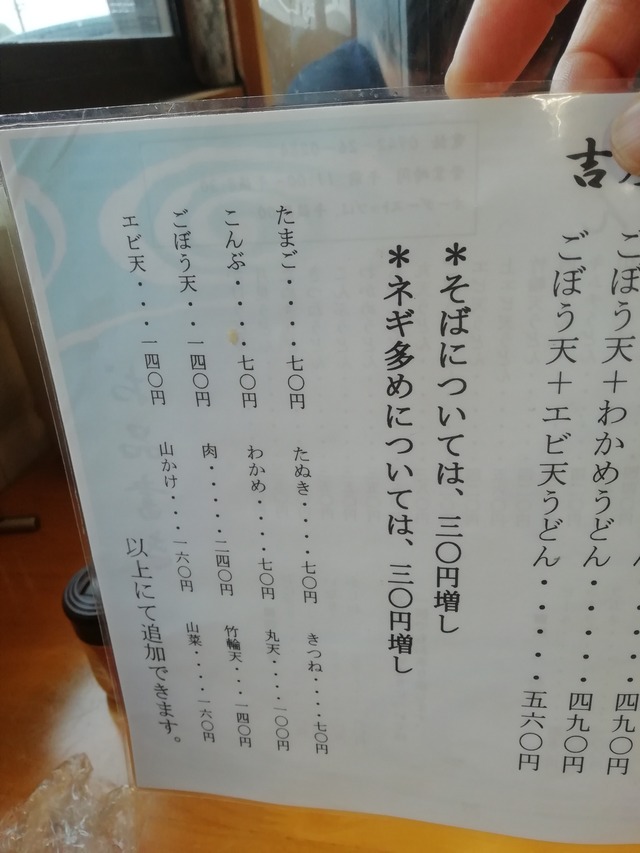 吉
ごぼう天＋わかめうどん・・・・・四九〇円
ごぼう天＋エビ天うどん・・・・・五六〇円
＊そばについては、三〇円増し
＊ネギ多めについては、三〇円増し
たまご・・・・七〇円
こんぶ・・・・七〇円
ごぼう天・・一四〇円
エビ天・・・一四〇円
たぬき・・・・七〇円
わかめ・・・・七〇円
肉・・・・・二四〇円
山かけ・・・一六〇円
きつね・・・・七〇円
丸天・・・・一〇〇円
竹輪天・・・一四〇円
山菜・・・・一六〇円
以上にて追加できます。